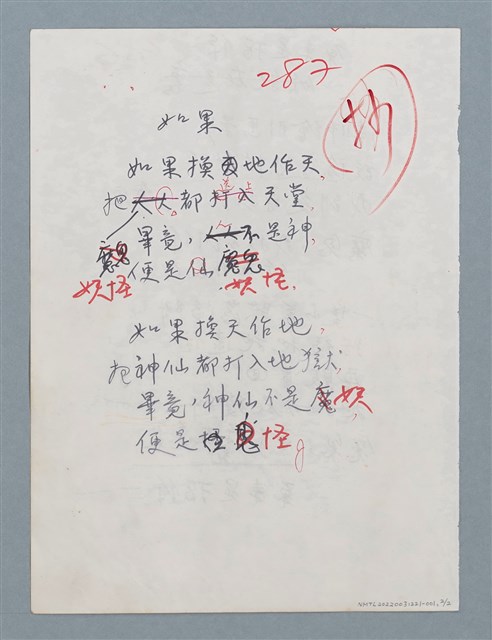 287
抄
如果
如果換地作天,
把人人都送上天堂,
畢竟,人不是神,
魔鬼
便是仙魔鬼
妖怪 妖怪,
如果換天作地,
把神仙都打入地獄,
畢竟,神仙不是魔妖
便是怪
NMTL20220031221-001, 2/2